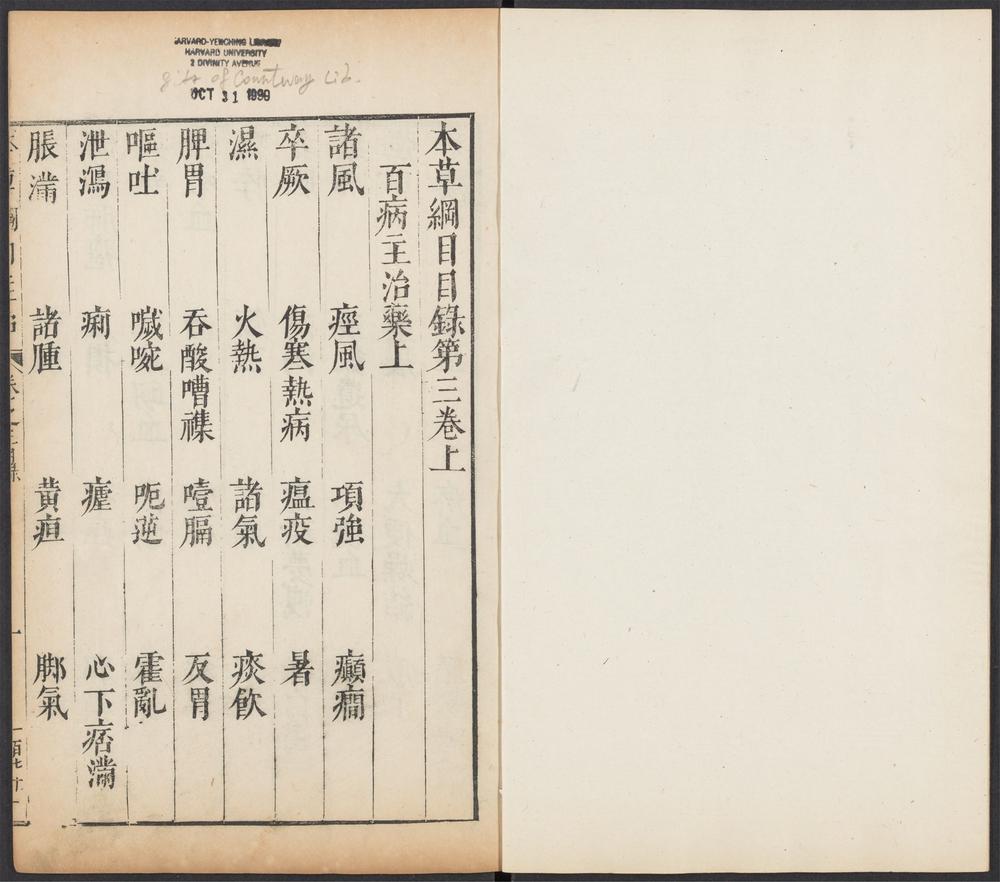 HARVARD-YENCHING LIBRARY
HARVARD UNIVERSITY
2 DIVINITY AVENUE
gift of Countway Lib.
OCT 31 1990
本草綱目目錄第三卷上
百病主治藥上
諸風 痙風 項強 癲癎
卒厥 傷寒熱病 瘟疫 暑
濕 火熱 諸氣 痰飲
脾胃 吞酸嘈襍 噎膈 反胃
嘔吐 噦啘 呃逆 霍亂
泄瀉 痢 瘧 心下痞滿
脹滿 諸腫 黃疸 脚氣